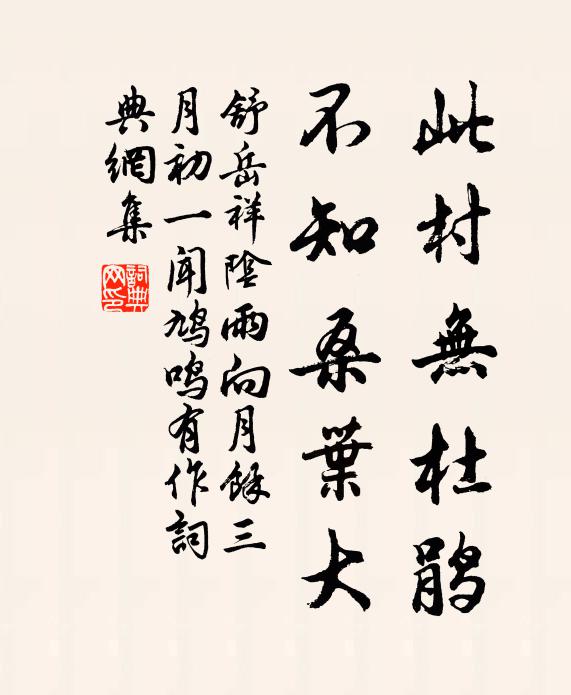 此村無杜鹃
不知桑葉大
舒岳祥陰雨向月餘三
月初一聞鳩鳴有作詞
典網集
詞典
网印